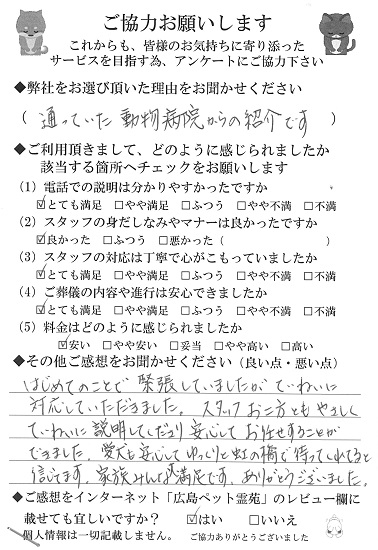 ご協力お願いします
これからも、皆様のお気持ちに寄り添った
サービスを目指す為、アンケートにご協力下さい
◆弊社をお選び頂いた理由をお聞かせください
( 通っていた動物病院からの紹介です )
◆ご利用頂きまして、どのように感じられましたか
該当する箇所へチェックをお願いします
(1) 電話での説明は分かりやすかったですか
☑とても満足 □やや満足 □ふつう □やや不満 □不満
(2) スタッフの身だしなみやマナーは良かったですか
☑良かった □ふつう □悪かった ( )
(3) スタッフの対応は丁寧で心がこもっていましたか
☑とても満足 □やや満足 □ふつう □やや不満 □不満
(4) ご葬儀の内容や進行は安心できましたか
☑とても満足 □やや満足 □ふつう □やや不満 □不満
(5) 料金はどのように感じられましたか
☑安い □やや安い □妥当 □やや高い □高い
◆その他ご感想をお聞かせください (良い点・悪い点)
はじめてのことで緊張していましたが ていねいに
対応していただきました。スタッフお二方ともやさしく
ていねいに説明してくださり安心してお任せすることが
できました。愛犬も安心してゆっくりと虹の橋で待ってくれてると
信じてます。家族みんな大満足です。ありがとうございました。
◆ご感想をインターネット「広島ペット霊苑」のレビュー欄に
載せても宜しいですか? ☑はい □いいえ
個人情報は一切記載しません。 ご協力ありがとうございました